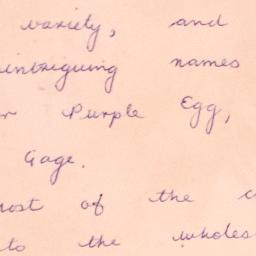 variety, and
intriguing names
Purple Egg,
Gage.
most of the
to the